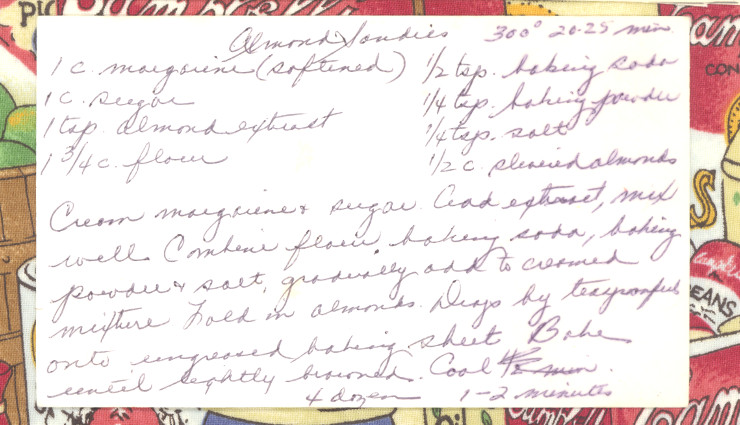 Almond Sandies 300° 20-25 min.
1 c. margarine (softened) 1/2 tsp. baking soda
1 c. sugar 1/4 tsp. baking powder
1 tsp. almond extract 1/4 tsp. salt
1 3/4 c. flour 1/2 c. slivered almonds
Cream margarine & sugar. Add extract, mix
well. Combine flour, baking soda, baking
powder & salt, gradually add to creamed
mixture. Fold in almonds. Drop by teaspoonfuls
onto ungreased baking sheet. Bake
until lightly browned. Cool min.
4 dozen 1-2 minutes
Campbell's
CON
EANS